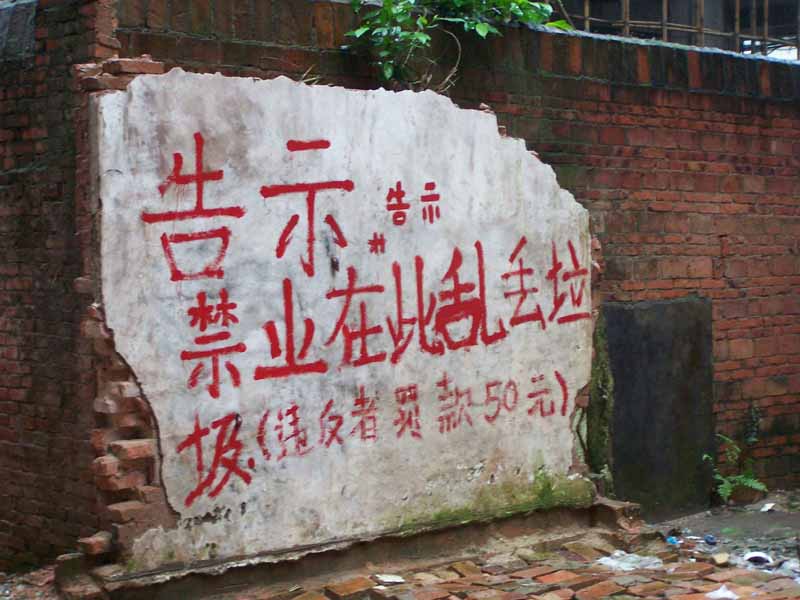 告示
告示
禁止在此乱丢垃
圾(违反者罚款50元)